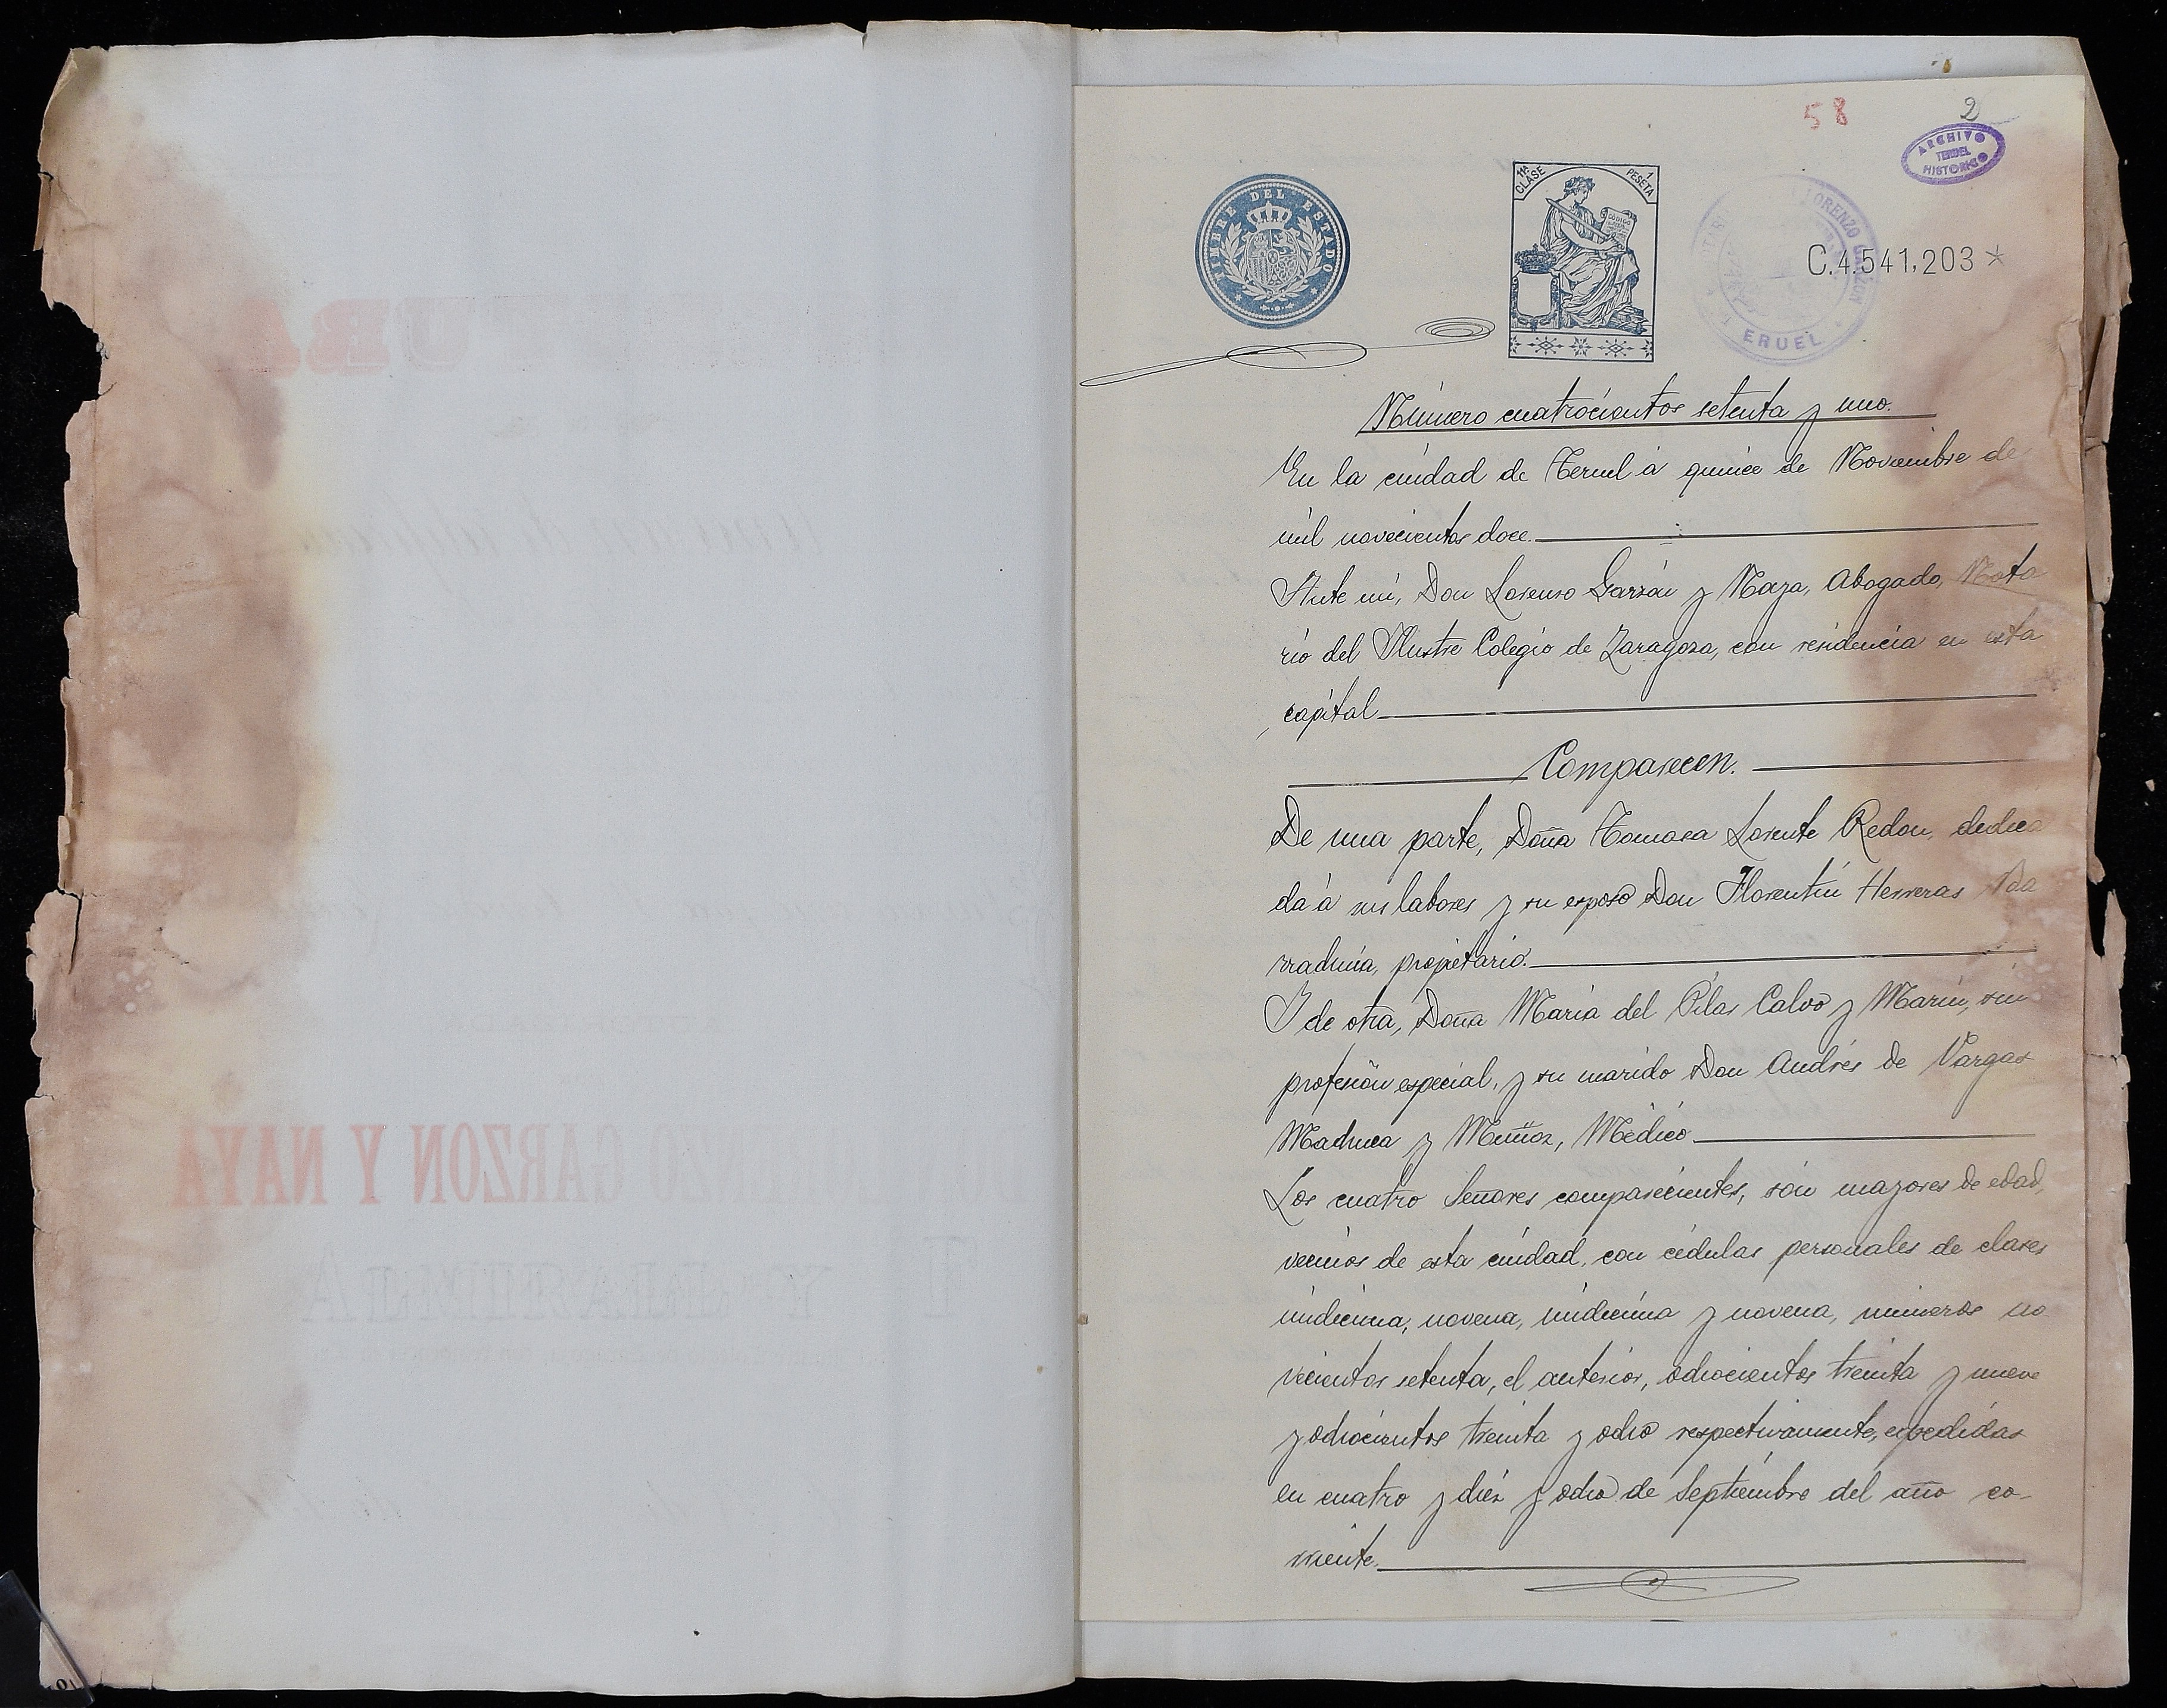 58
2
ARCHIVO
TERUEL
HISTORICO
TIMBRE DEL ESTADO
11ª CLASE
1 PESETA
CODIGO
LORENZO GARZON
TERUEL
C.4.541,203*
Número cuatrocientos setenta y uno.
En la ciudad de Teruel á quince de Noviembre de
mil novecientos doce.
Ante mí, Don Lorenzo Garzón y Naya, Abogado, Nota
rio del Ilustre Colegio de Zaragoza, con residencia en esta
capital
Comparecen.
De una parte, Doña Tomasa Lorente Redon, dedica
da á sus labores y su esposo Don Florentín Herreras
propietario.
Y de otra, Doña María del Pilar Calvo y Marín, sin
profesión especial, y su marido Don Andrés de Vargas
Machuca y Muñoz, Médico
Los cuatro Señores comparecientes, són mayores de edad,
vecinos de esta ciudad, con cédulas personales de clases
undécima, novena, undécima y novena, números no
vecientos setenta, el anterior, ochocientos treinta y nueve
y ochocientos treinta y ocho respectivamente, expedidas
en cuatro y diéz y ocho de Septiembre del año co-
rriente.
GARZON Y NAYA